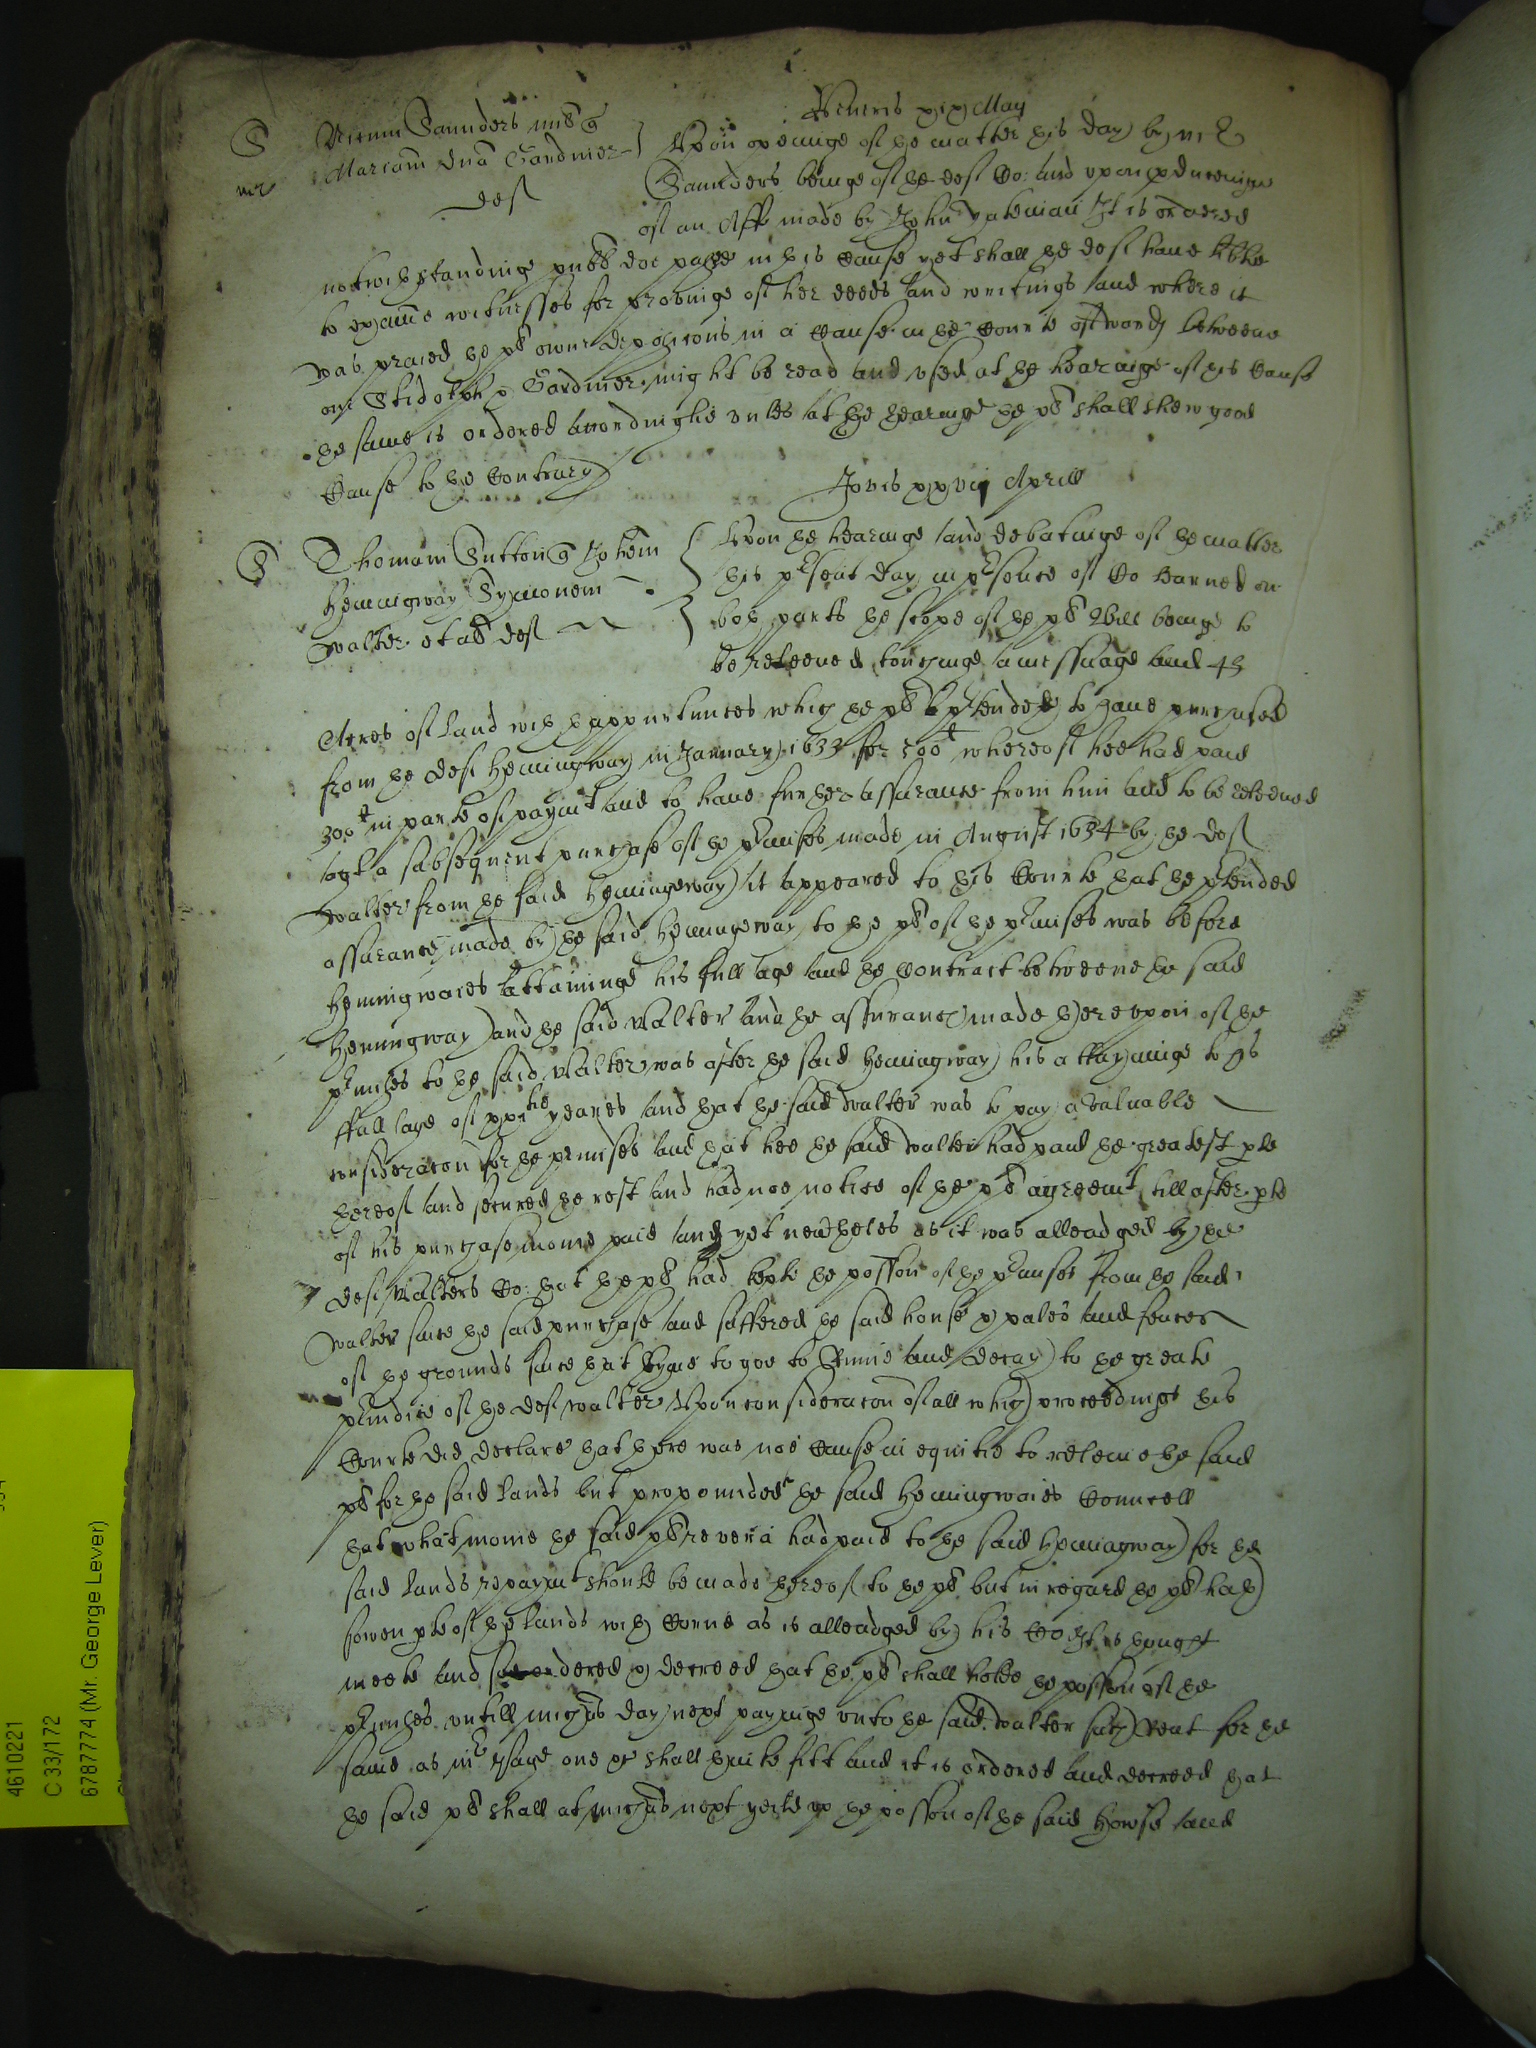 Veneris xix May
S Saunders mil q
mr Mariam dnam Gardiner
def
Upon openinge of the matter this day by mr
Saunders beinge of the def Co: and upon produceinge
of an Aff made by John yateman It is ordered
notwithstandinge publ doe passe in this Cause yet shall the def have libtie
to examine witnesses for provinge of her deeds and writings and where it
was praied the pl owne deposicons in a Cause in the Courte of wards betweene
one Stidolph & Gardiner might be read and used at the hearaige of this Cause
the same is ordered accordinglie unles at the hearinge the pl shall shew good
Cause to the Contrary
Jovis xxvij Aprill
S Thomam Sutton q Johem
Hemingway Symonem
Walter et al def
Upon the hearinge and debatinge of the matter
this psent day in psence of Co learned on
both parts the scope of the pl Bill beinge to
be releeved touchinge a messuage and 45
Acres of land with thappurtnces which the pl ptendeth to have purchased
from the def Hemingway in January 1633 for 500l whereof hee had paid
300l in parte of paymt and to have further assurance from him and to be releeved
agt a subsequent purchase of the pmises made in August 1634 by the def
Walter from the said Hemingeway it appeared to this Courte that the ptended
assurance made by the said Hemingeway to the pl of the pmises was before
Hemingwaies attaininge his full age and the Contract betweene the said
Hemingway and the said Walter and the assurance made thereupon of the
pmises to the said Walter was after the said Hemingway his attayninge to his
full age of xxi tie yeares and that the said Walter was to pay a valuable
consideracon for the premises and that hee the said Walter had paid the greatest pte
thereof and secured the rest and had noe notice of the pl agreemt till after pte
of his purchase monie paid and yet neutheles as it was alleadged by the
def Walters Co: that the pl had kepte the possion of the pmises from the said
Walter since the said purchase and suffered the said house & pales and fences
of the grounds since that tyme to goe to Ruine and decay to the greate
pindice of the def Walter Upon consideracon of all which proceedings this
Courte did declare that there was noe Cause in equitie to releeve the said
pl for the said lands but propounded the said Hemingwaies Councell
that what monie the said pl had paid to the said Hemingway for the
said lands repaymt should be made thereof to the pl but in regard the pl hath
sowen pte of the lands with Corne as is alleadged by his Co It is thought
meete and soe ordered & decreed that the pl shall holde the possion of the
pmises untill michas day next payinge unto the said Walter such Rent for the
same as mr page one etc shall thinke fitt and it is ordered and decreed that
the said pl shall at michas next yeild up the possion of the said howse and
4610221
C 33/172
6787774 (Mr. George Lever)